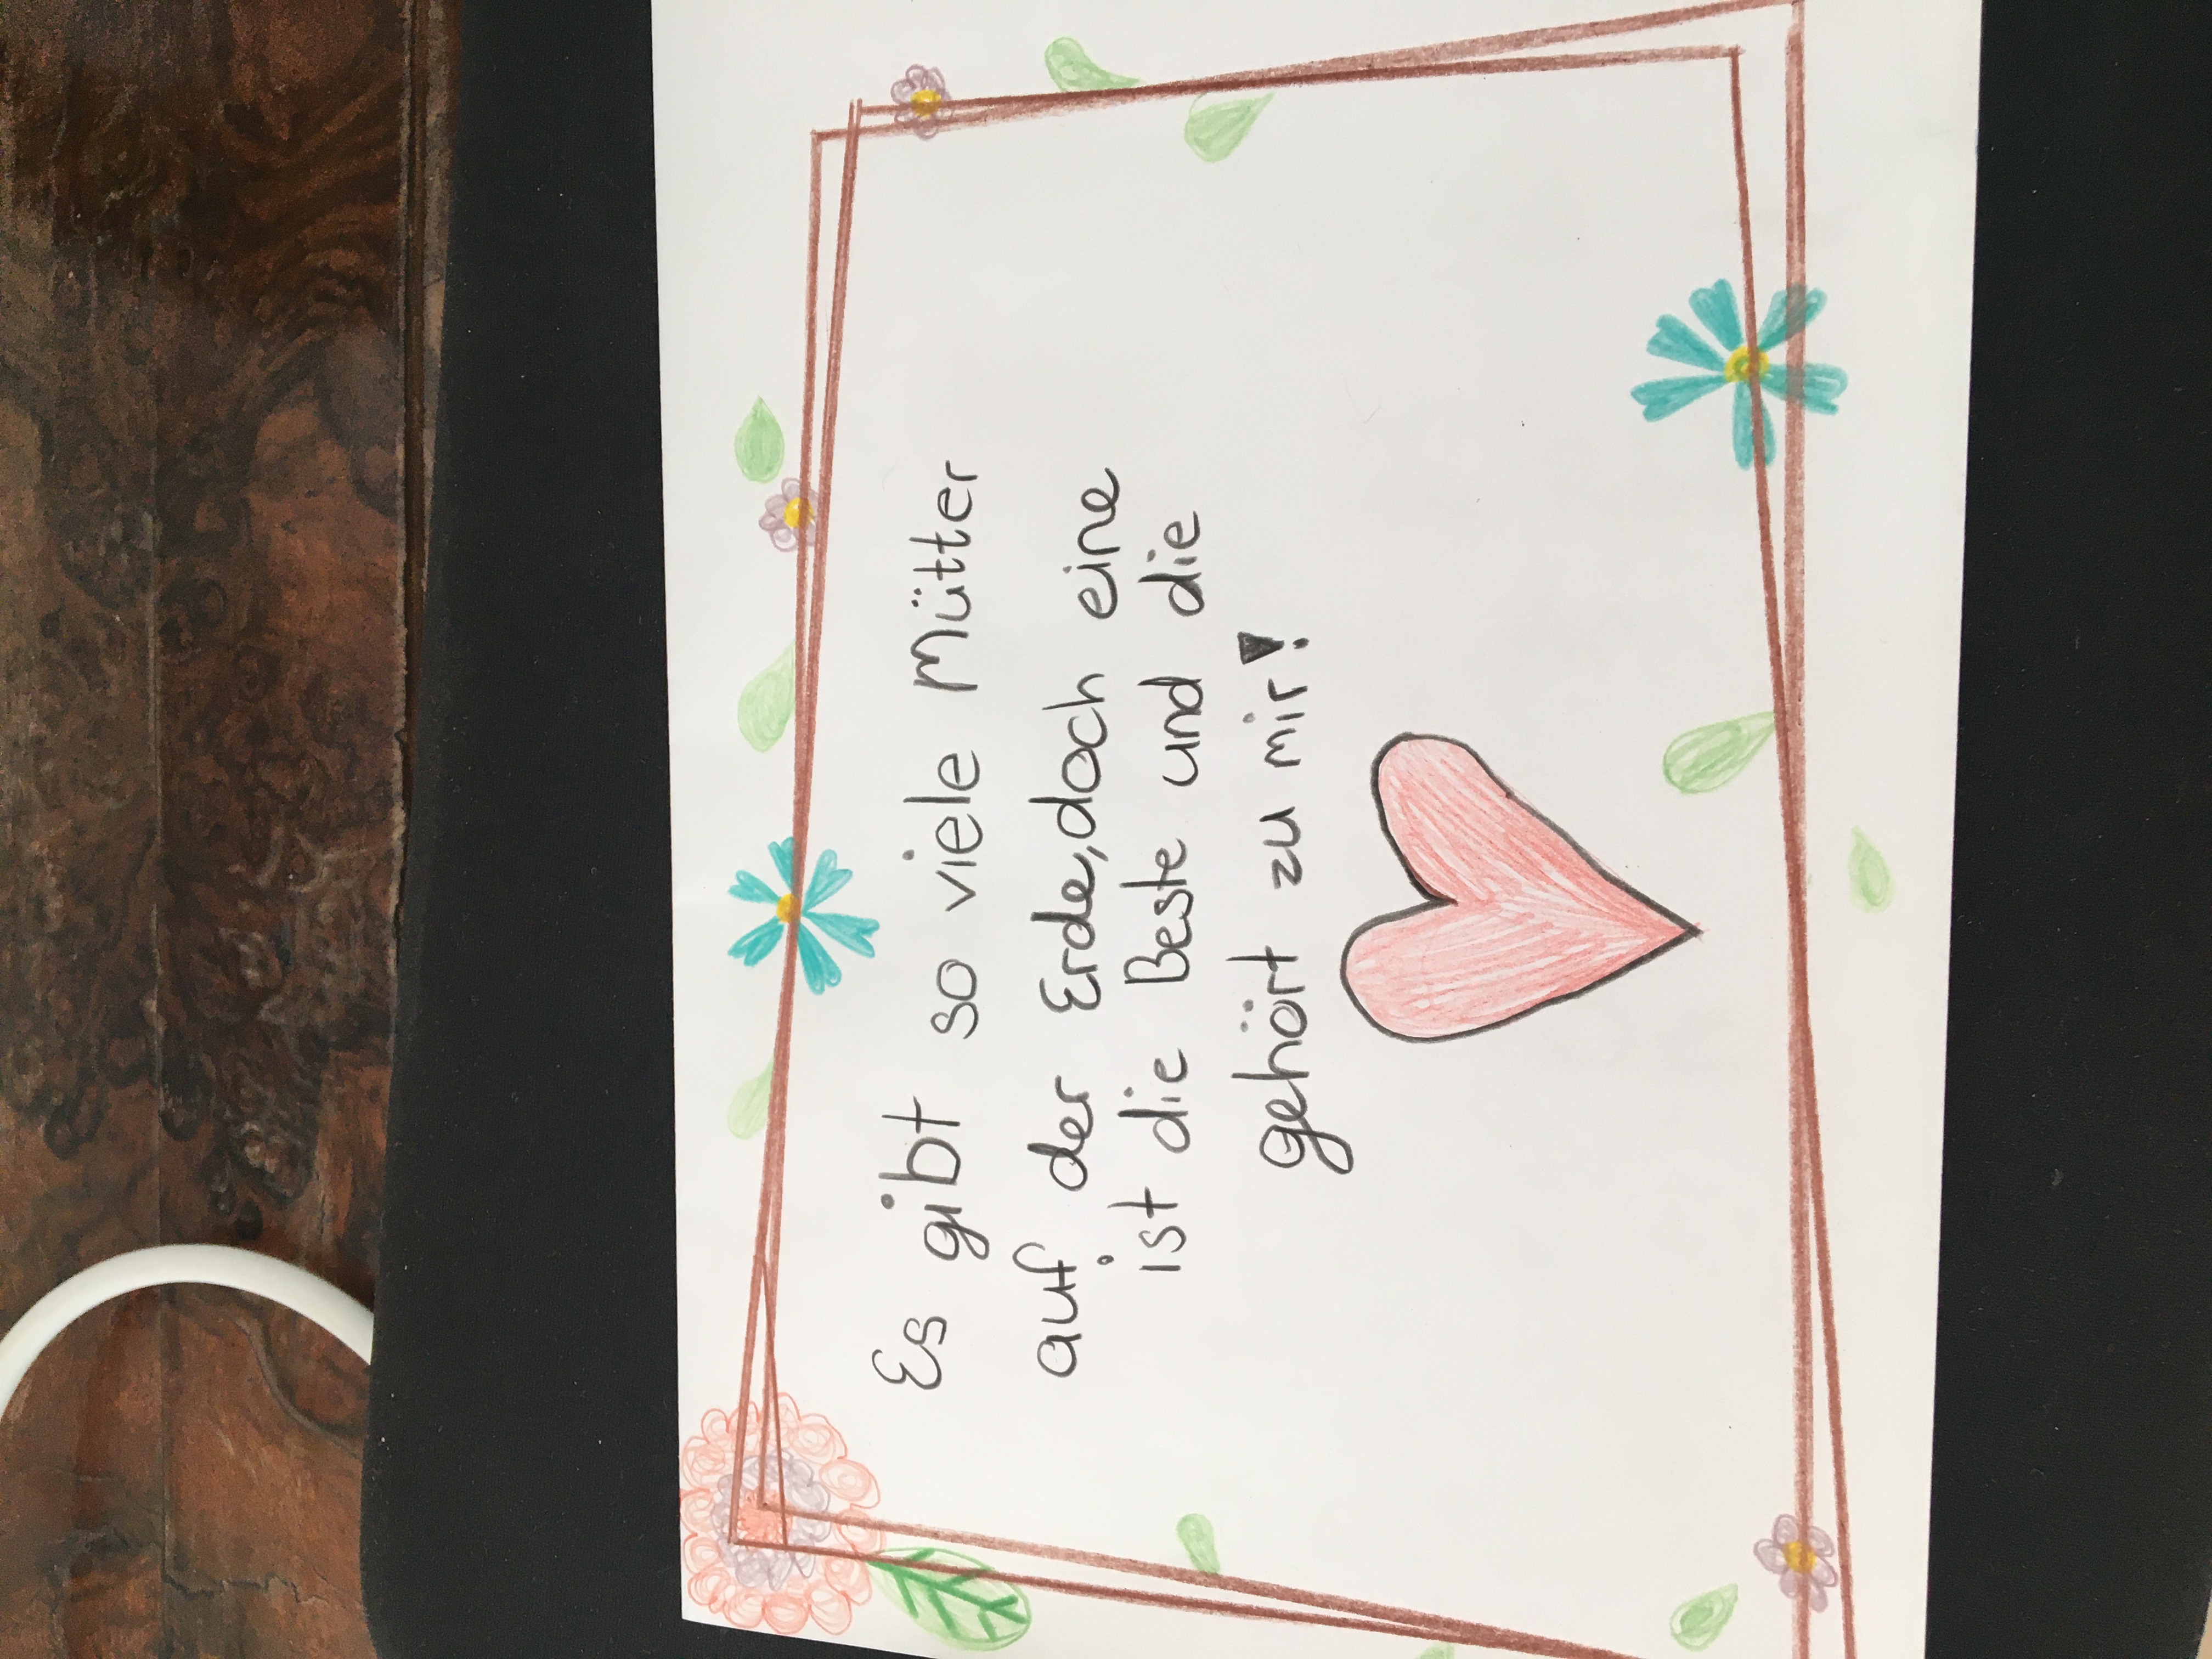 Es gibt so viele Mütter
auf der Erde, doch eine
ist die Beste und die
gehört zu mir!